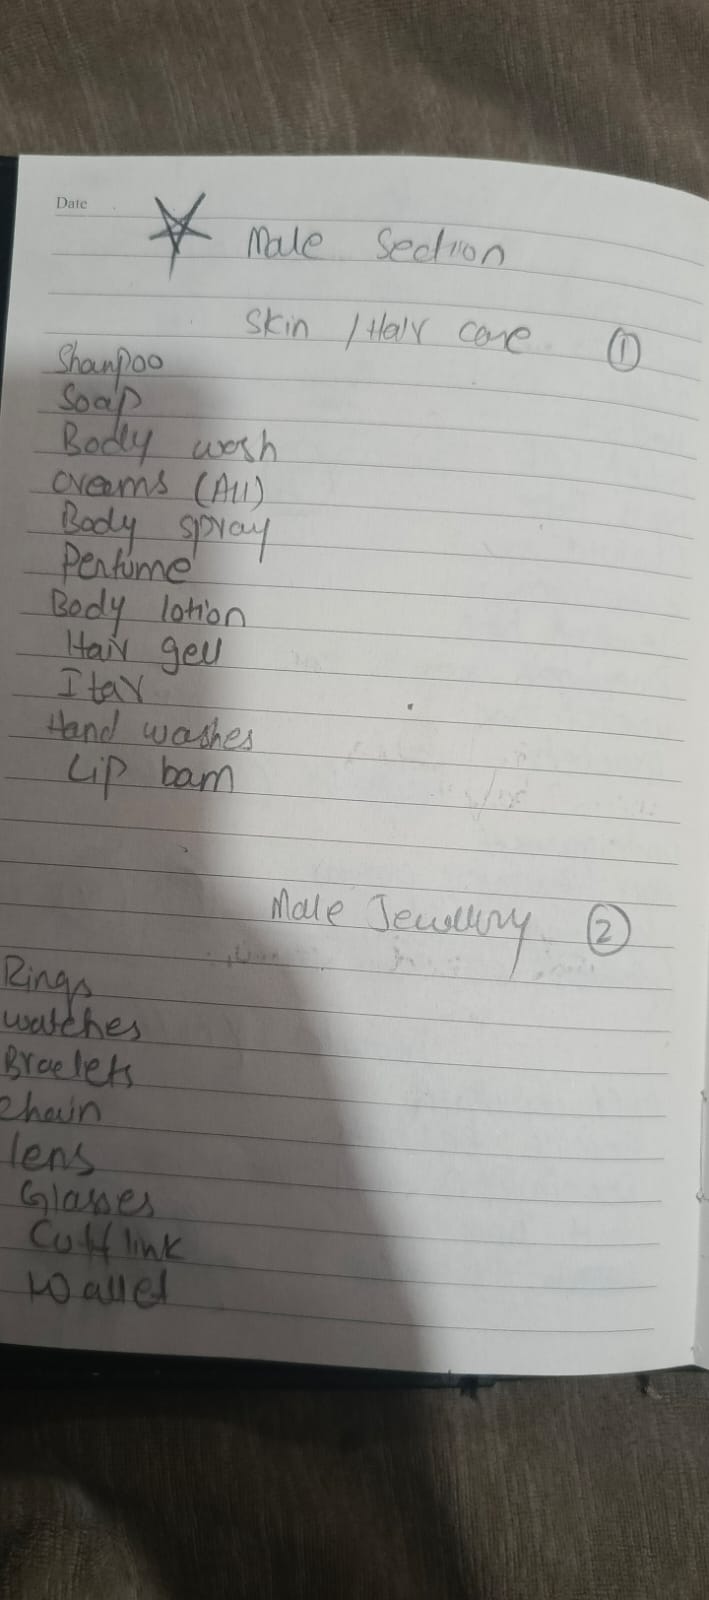 Date
Male Section
Skin / Hair care ①
Shanpoo
Soap
Body wash
creams (All)
Body spray
Perfume
Body lotion
Hair gell
Itar
Hand washes
Lip bam
Male Jewellry ②
Rings
watches
Braelets
chain
lens
Glasses
Cuff link
Wallet